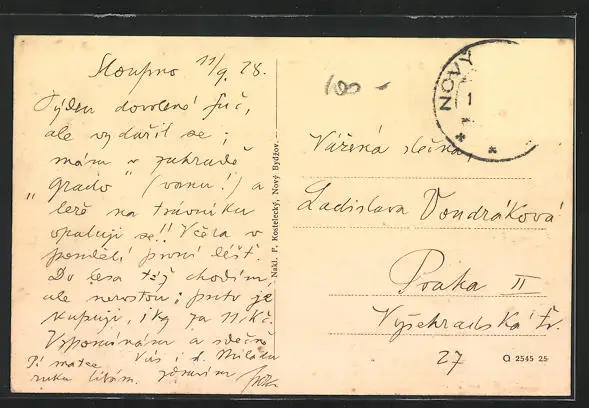 Sloupno 11/9. 28.
Týden dovolené fuč,
ale vydařil se;
mám v zahradě
"Grado" (vanu!) a
leže na trávníku
opaluji se!! Včera v
pondělí první déšť.
Do lesa též chodím,
ale nerostou; proto je
kupuji, 1 kg za 11 Kč.
Vzpomínám a srdečně
Vás i d. Miladu
zdravím
Pí matce
ruku líbám.
Nákl. F. Kostelecký, Nový Bydžov.
NOVÝ
1
Vážená slečna,
Ladislava Vondráková
Praha II
Vyšehradská tř.
27
2545 25